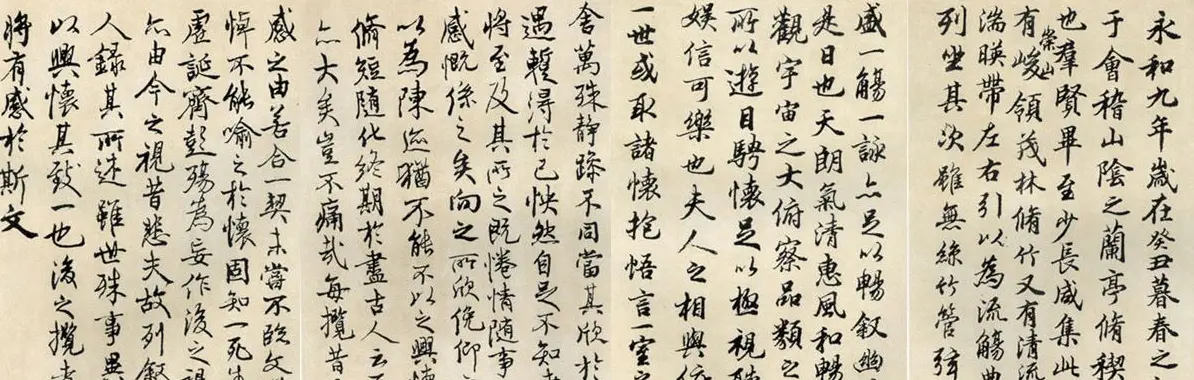 永和九年歲在癸丑暮春之
于會稽山陰之蘭亭脩禊
也羣賢畢至少長咸集此
有崇山峻領茂林脩竹又有清流
湍暎帶左右引以為流觴曲
列坐其次雖無絲竹管弦
盛一觴一詠亦足以暢叙幽
是日也天朗氣清惠風和暢
觀宇宙之大俯察品類之
所以遊目騁懷足以極視聽
娛信可樂也夫人之相與俯
一世或取諸懷抱悟言一室之
舍萬殊靜躁不同當其欣於
遇蹔得於己怏然自足不知老
將至及其所之既惓情隨事
感慨係之矣向之所欣俛仰
以為陳迹猶不能不以之興懷
脩短隨化終期於盡古人云
亦大矣豈不痛哉每攬昔
感之由若合一契未甞不臨文
悼不能喻之於懷固知一死生
虛誕齊彭殤為妄作後之視
亦由今之視昔悲夫故列叙
人錄其所述雖世殊事異
以興懷其致一也後之攬者
將有感於斯文